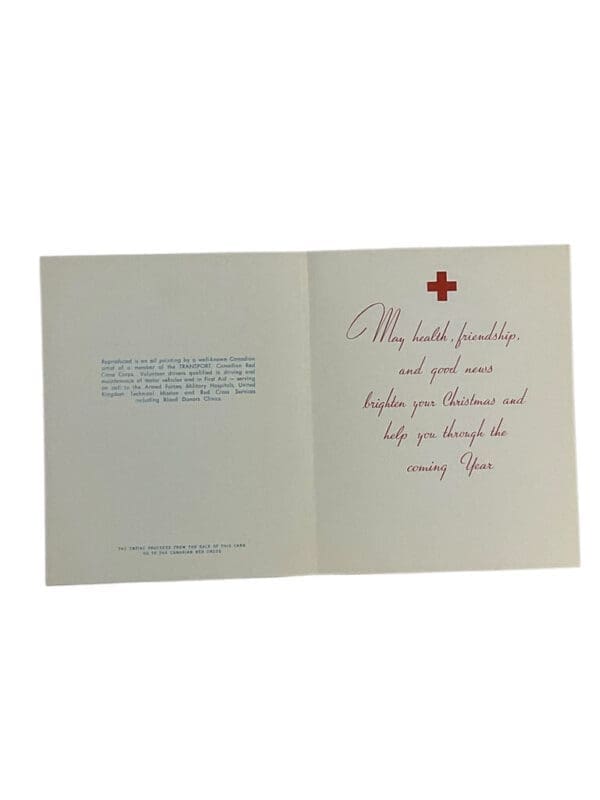 Reproduced is an oil painting by a well-known Canadian
artist of a member of the TRANSPORT, Canadian Red
Cross Corps. Volunteer drivers qualified in driving and
maintenance of motor vehicles and in First Aid — serving
on call to the Armed Forces, Military Hospitals, United
Kingdom Technical Mission and Red Cross Services
including Blood Donors Clinics.
THE ENTIRE PROCEEDS FROM THE SALE OF THIS CARD
GO TO THE CANADIAN RED CROSS
May health, friendship,
and good news
brighten your Christmas and
help you through the
coming Year